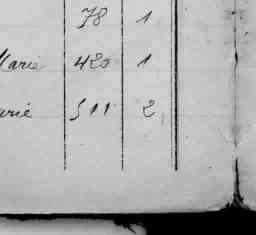 78 1
Marie 420 1
arie 511 2